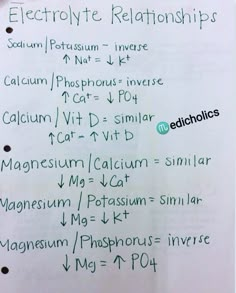 Electrolyte Relationships
Sodium/Potassium - inverse
↑ Na⁺ = ↓ K⁺
Calcium/Phosphorus = inverse
↑ Ca⁺ = ↓ PO4
Calcium/Vit D = similar
medicholics
↑ Ca⁺ - ↑ Vit D
Magnesium/Calcium = similar
↓ Mg = ↓ Ca⁺
Magnesium/Potassium = similar
↓ Mg = ↓ K⁺
Magnesium/Phosphorus = inverse
↓ Mg = ↑ PO4